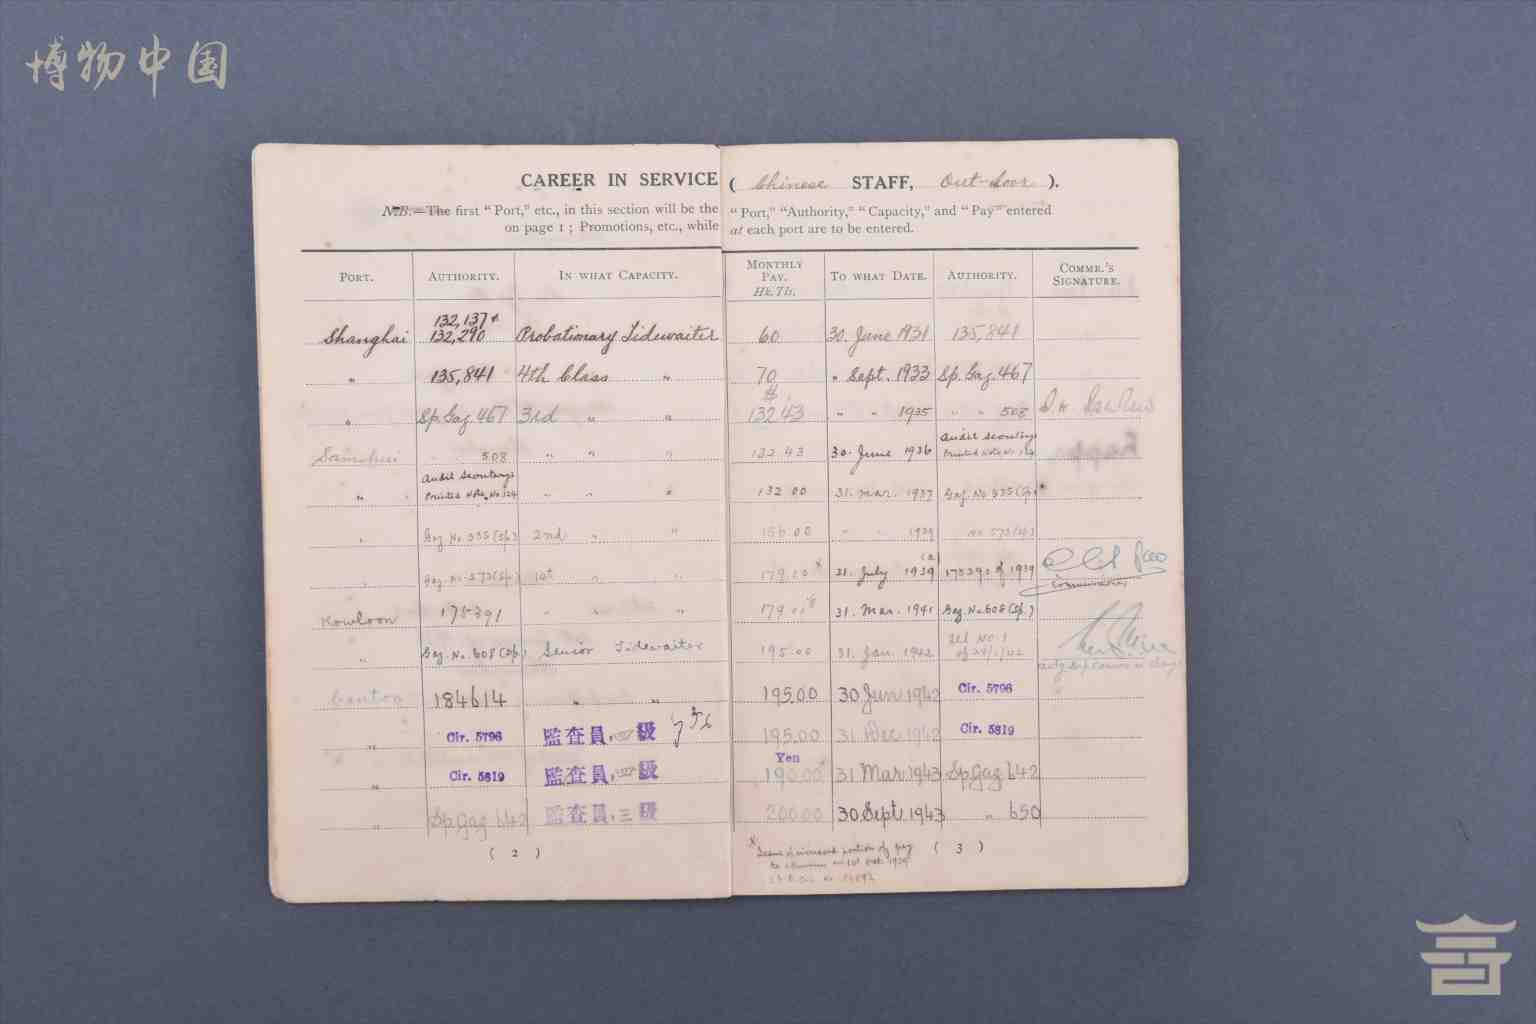 博物中国
CAREER IN SERVICE ( Chinese STAFF, Out-door ).
N.B.—The first “Port,” etc., in this section will be the “Port,” “Authority,” “Capacity,” and “Pay” entered
on page 1; Promotions, etc., while at each port are to be entered.
PORT. AUTHORITY. IN WHAT CAPACITY. MONTHLY PAY. Hk.Tls. TO WHAT DATE. AUTHORITY. COMMR.'S SIGNATURE.
132,137 &
Shanghai 132,290 Probationary Tidewaiter 60 30. June 1931 135,841
" 135,841 4th Class " 70 " Sept. 1933 Sp. Gaz. 467
$
" Sp. Gaz. 467 3rd " " 132.43 " " 1935 " " 508
Samshui 508 " " " 132.43 30. June 1936 Audit Secretary's Printed Note No. 124
" Audit Secretary's Printed Note No. 124 " " " 132.00 31. Mar. 1937 Gaz. No. 535 (Sp.)
" Gaz. No. 535 (Sp.) 2nd " " 156.00 " " 1939 No. 573 (Sp.)
" Gaz. No. 573 (Sp.) 1st " " 179.00 x 31. July 1939 of 1939
Kowloon 178391 " " " 179.00 31. Mar. 1941 Gaz. No. 608 (Sp.)
" Gaz. No. 608 (Sp.) Senior Tidewaiter 195.00 31. Jan. 1942
Canton 184614 " " 195.00 30 Jun 1942 Cir. 5796
" Cir. 5796 監查員,四級 195.00 31 Dec 1942 Cir. 5819
Yen
" Cir. 5819 監查員,四級 190.00 31 Mar 1943 Sp. Gaz 642
" Sp. Gaz 642 監查員,三級 200.00 30 Sept. 1943 " 650
( 2 )
( 3 )